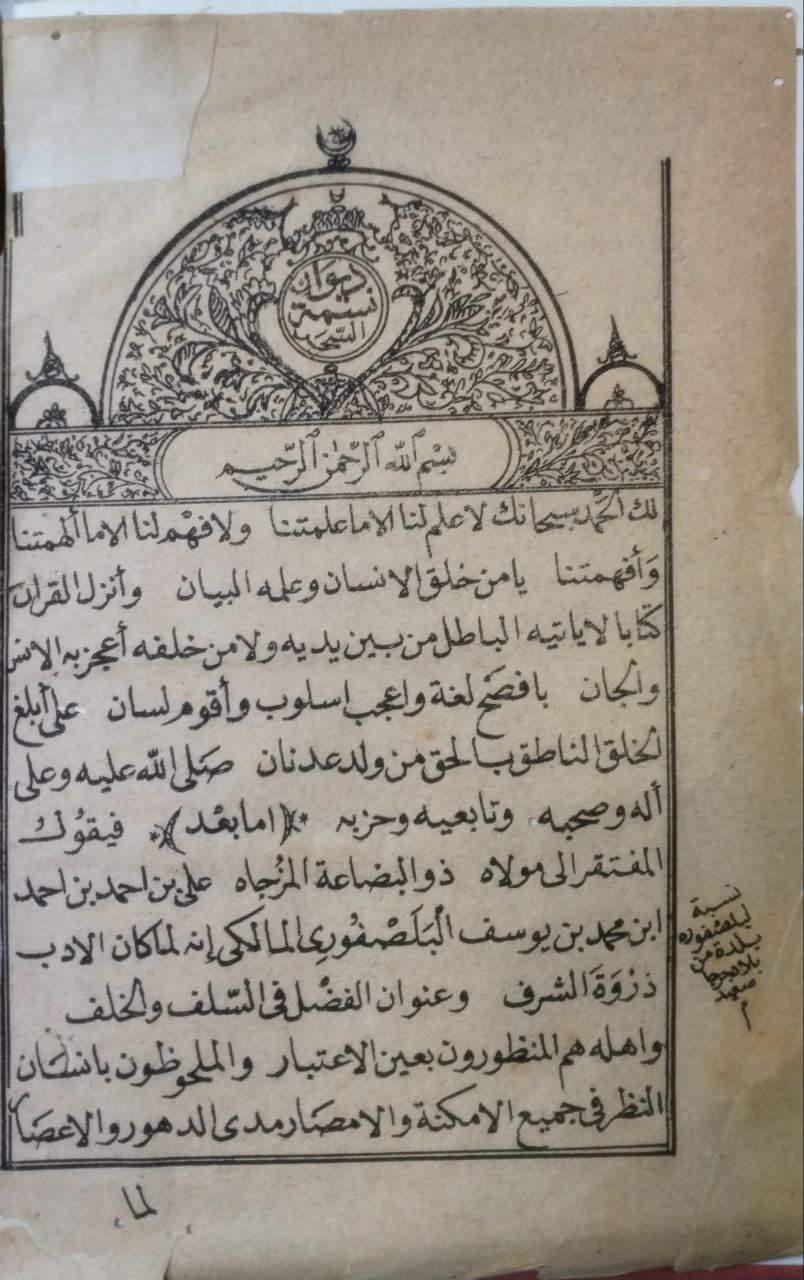 ديوان
نسمة
السحر
بِسْمِ ٱللَّهِ ٱلرَّحْمٰنِ ٱلرَّحِيمِ
لك الحمد سبحانك لا علم لنا الا ما علمتنا ولا فهم لنا الا ما ألهمتنا
وَأفهمتنا يا من خلق الانسان وعلمه البيان وأنزل القران
كتابا لا ياتيه الباطل من بين يديه ولا من خلفه أعجز به الانس
والجان بافصَح لغة واعجب اسلوب وأقوم لسان على أبلغ
الخلق الناطق بالحق من ولد عدنان صَلى الله عليه وعلى
أله وصحبه وتابعيه وحزبه *(امابعْد)* فيقوُل
المفتقر الى مولاه ذو البضاعة المزُجاه على بن احمد بن احمد
ابن محمد بن يوسف الْبَلَصْفُورِى المالكى إنه لما كان الادب
ذرْوَةَ الشرف وعنوان الفضْل فى السّلف والخلف
واهله هم المنظورون بعين الاعتبار والملحوظون بانسَان
النظر فى جميع الامكنة والامصَار مدى الدهور والاعصَار
نسبة
لبلصفوره
بلدة من
بلاد جرجا
لما